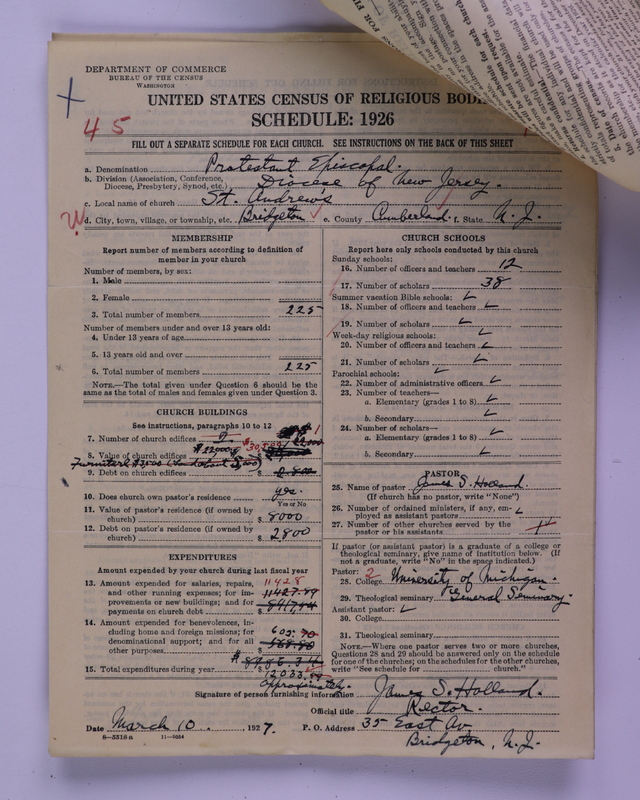 DEPARTMENT OF COMMERCE
BUREAU OF THE CENSUS
WASHINGTON
UNITED STATES CENSUS OF RELIGIOUS BODI
SCHEDULE: 1926
45
FILL OUT A SEPARATE SCHEDULE FOR EACH CHURCH. SEE INSTRUCTIONS ON THE BACK OF THIS SHEET
a. Denomination Protestant Episcopal.
b. Division (Association, Conference, Diocese, Presbytery, Synod, etc.) Diocese of New Jersey.
c. Local name of church St. Andrew's
d. City, town, village, or township, etc. Bridgeton e. County Cumberland f. State N. J.
MEMBERSHIP
Report number of members according to definition of
member in your church
Number of members, by sex:
1. Male
2. Female
3. Total number of members 225
Number of members under and over 13 years old:
4. Under 13 years of age
5. 13 years old and over
6. Total number of members 225
NOTE.—The total given under Question 6 should be the
same as the total of males and females given under Question 3.
CHURCH BUILDINGS
See instructions, paragraphs 10 to 12
7. Number of church edifices 1
8. Value of church edifices $22000
9. Debt on church edifices $
10. Does church own pastor's residence yes.
Yes or No
11. Value of pastor's residence (if owned by
church) $8000
12. Debt on pastor's residence (if owned by
church) $2800
EXPENDITURES
Amount expended by your church during last fiscal year
13. Amount expended for salaries, repairs, 11428
and other running expenses; for im- 11427.89
provements or new buildings; and for
payments on church debt $
14. Amount expended for benevolences, in-
cluding home and foreign missions; for 605.70
denominational support; and for all
other purposes
15. Total expenditures during year $ 12033
approximately.
CHURCH SCHOOLS
Report here only schools conducted by this church
Sunday schools:
16. Number of officers and teachers 12
17. Number of scholars 38
Summer vacation Bible schools:
18. Number of officers and teachers
19. Number of scholars
Week-day religious schools:
20. Number of officers and teachers
21. Number of scholars
Parochial schools:
22. Number of administrative officers
23. Number of teachers—
a. Elementary (grades 1 to 8)
b. Secondary
24. Number of scholars—
a. Elementary (grades 1 to 8)
b. Secondary
PASTOR
25. Name of pastor James S. Holland
(If church has no pastor, write "None")
26. Number of ordained ministers, if any, em-
ployed as assistant pastors
27. Number of other churches served by the
pastor or his assistants
If pastor (or assistant pastor) is a graduate of a college or
theological seminary, give name of institution below. (If
not a graduate, write "No" in the space indicated.)
Pastor: 2
28. College University of Michigan.
29. Theological seminary General Seminary.
Assistant pastor:
30. College
31. Theological seminary
NOTE.—Where one pastor serves two or more churches,
Questions 28 and 29 should be answered only on the schedule
for one of the churches; on the schedules for the other churches,
write "See schedule for church."
Signature of person furnishing information James S. Holland.
Official title Rector.
Date March 10, 1927. P. O. Address 35 East Av
Bridgeton, N. J.
8—5318a 11—9054